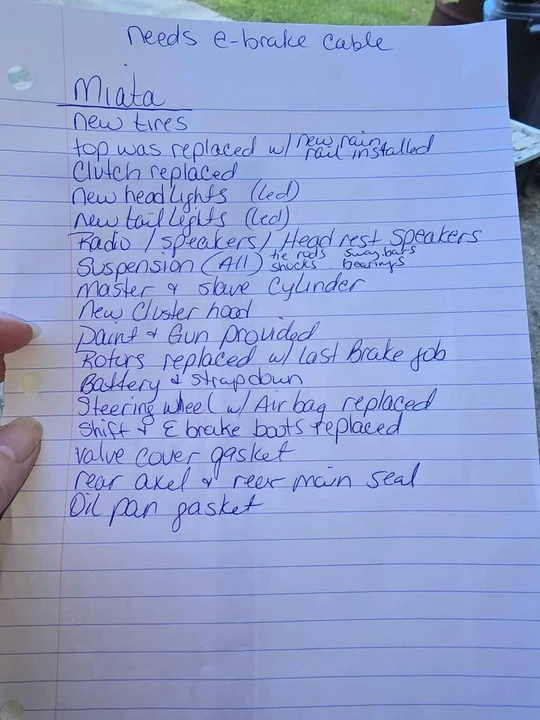 needs e-brake cable
Miata
new tires
top was replaced w/ new rain rail installed
Clutch replaced
new headlights (led)
new tail lights (led)
Radio / speakers / Head rest speakers
Suspension (All) tie rods sway bars shocks bearings
Master & slave Cylinder
new Cluster hood
Paint & Gun provided
Rotors replaced w/ last Brake job
Battery & strap down
Steering wheel w/ Air bag replaced
Shift & E brake boots replaced
valve cover gasket
rear axel & reer main seal
Oil pan gasket